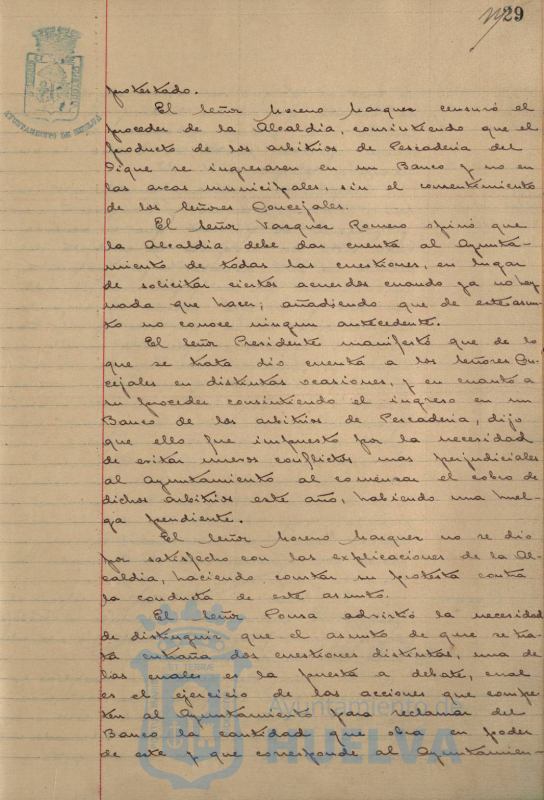 29
AYUNTAMIENTO DE HUELVA
protestado.
El Señor Moreno Marquez censuró el
proceder de la Alcaldia, consintiendo que el
producto de los arbitrios de Pescaderia del
Dique se ingresaren en un Banco y no en
las arcas municipales, sin el consentimiento
de los Señores Concejales.
El Señor Vazquez Romero opinó que
la Alcaldia debe dar cuenta al Ayunta-
miento de todas las cuestiones, en lugar
de solicitar ciertos acuerdos cuando ya no hay
nada que hacer; añadiendo que de este asun-
to no conoce ningun antecedente.
El Señor Presidente manifestó que de lo
que se trata dio cuenta a los Señores Con-
cejales en distintas ocasiones, y en cuanto a
su proceder consintiendo el ingreso en un
Banco de los arbitrios de Pescaderia, dijo
que ello fue impuesto por la necesidad
de evitar nuevos conflictos mas perjudiciales
al Ayuntamiento al comenzar el cobro de
dichos arbitrios este año, habiendo una huel-
ga pendiente.
El Señor Moreno Marquez no se dio
por satisfecho con las explicaciones de la Al-
caldia, haciendo constar su protesta contra
la conducta de este asunto.
El Señor Ponsa advirtió la necesidad
de distinguir que el asunto de que se tra-
ta entraña dos cuestiones distintas, una de
las cuales es la puesta a debate, cual
es el ejercicio de las acciones que compe-
ten al Ayuntamiento para reclamar del
Banco la cantidad que obra en poder
de este y que corresponde al Ayuntamien-
Ayuntamiento de
HUELVA